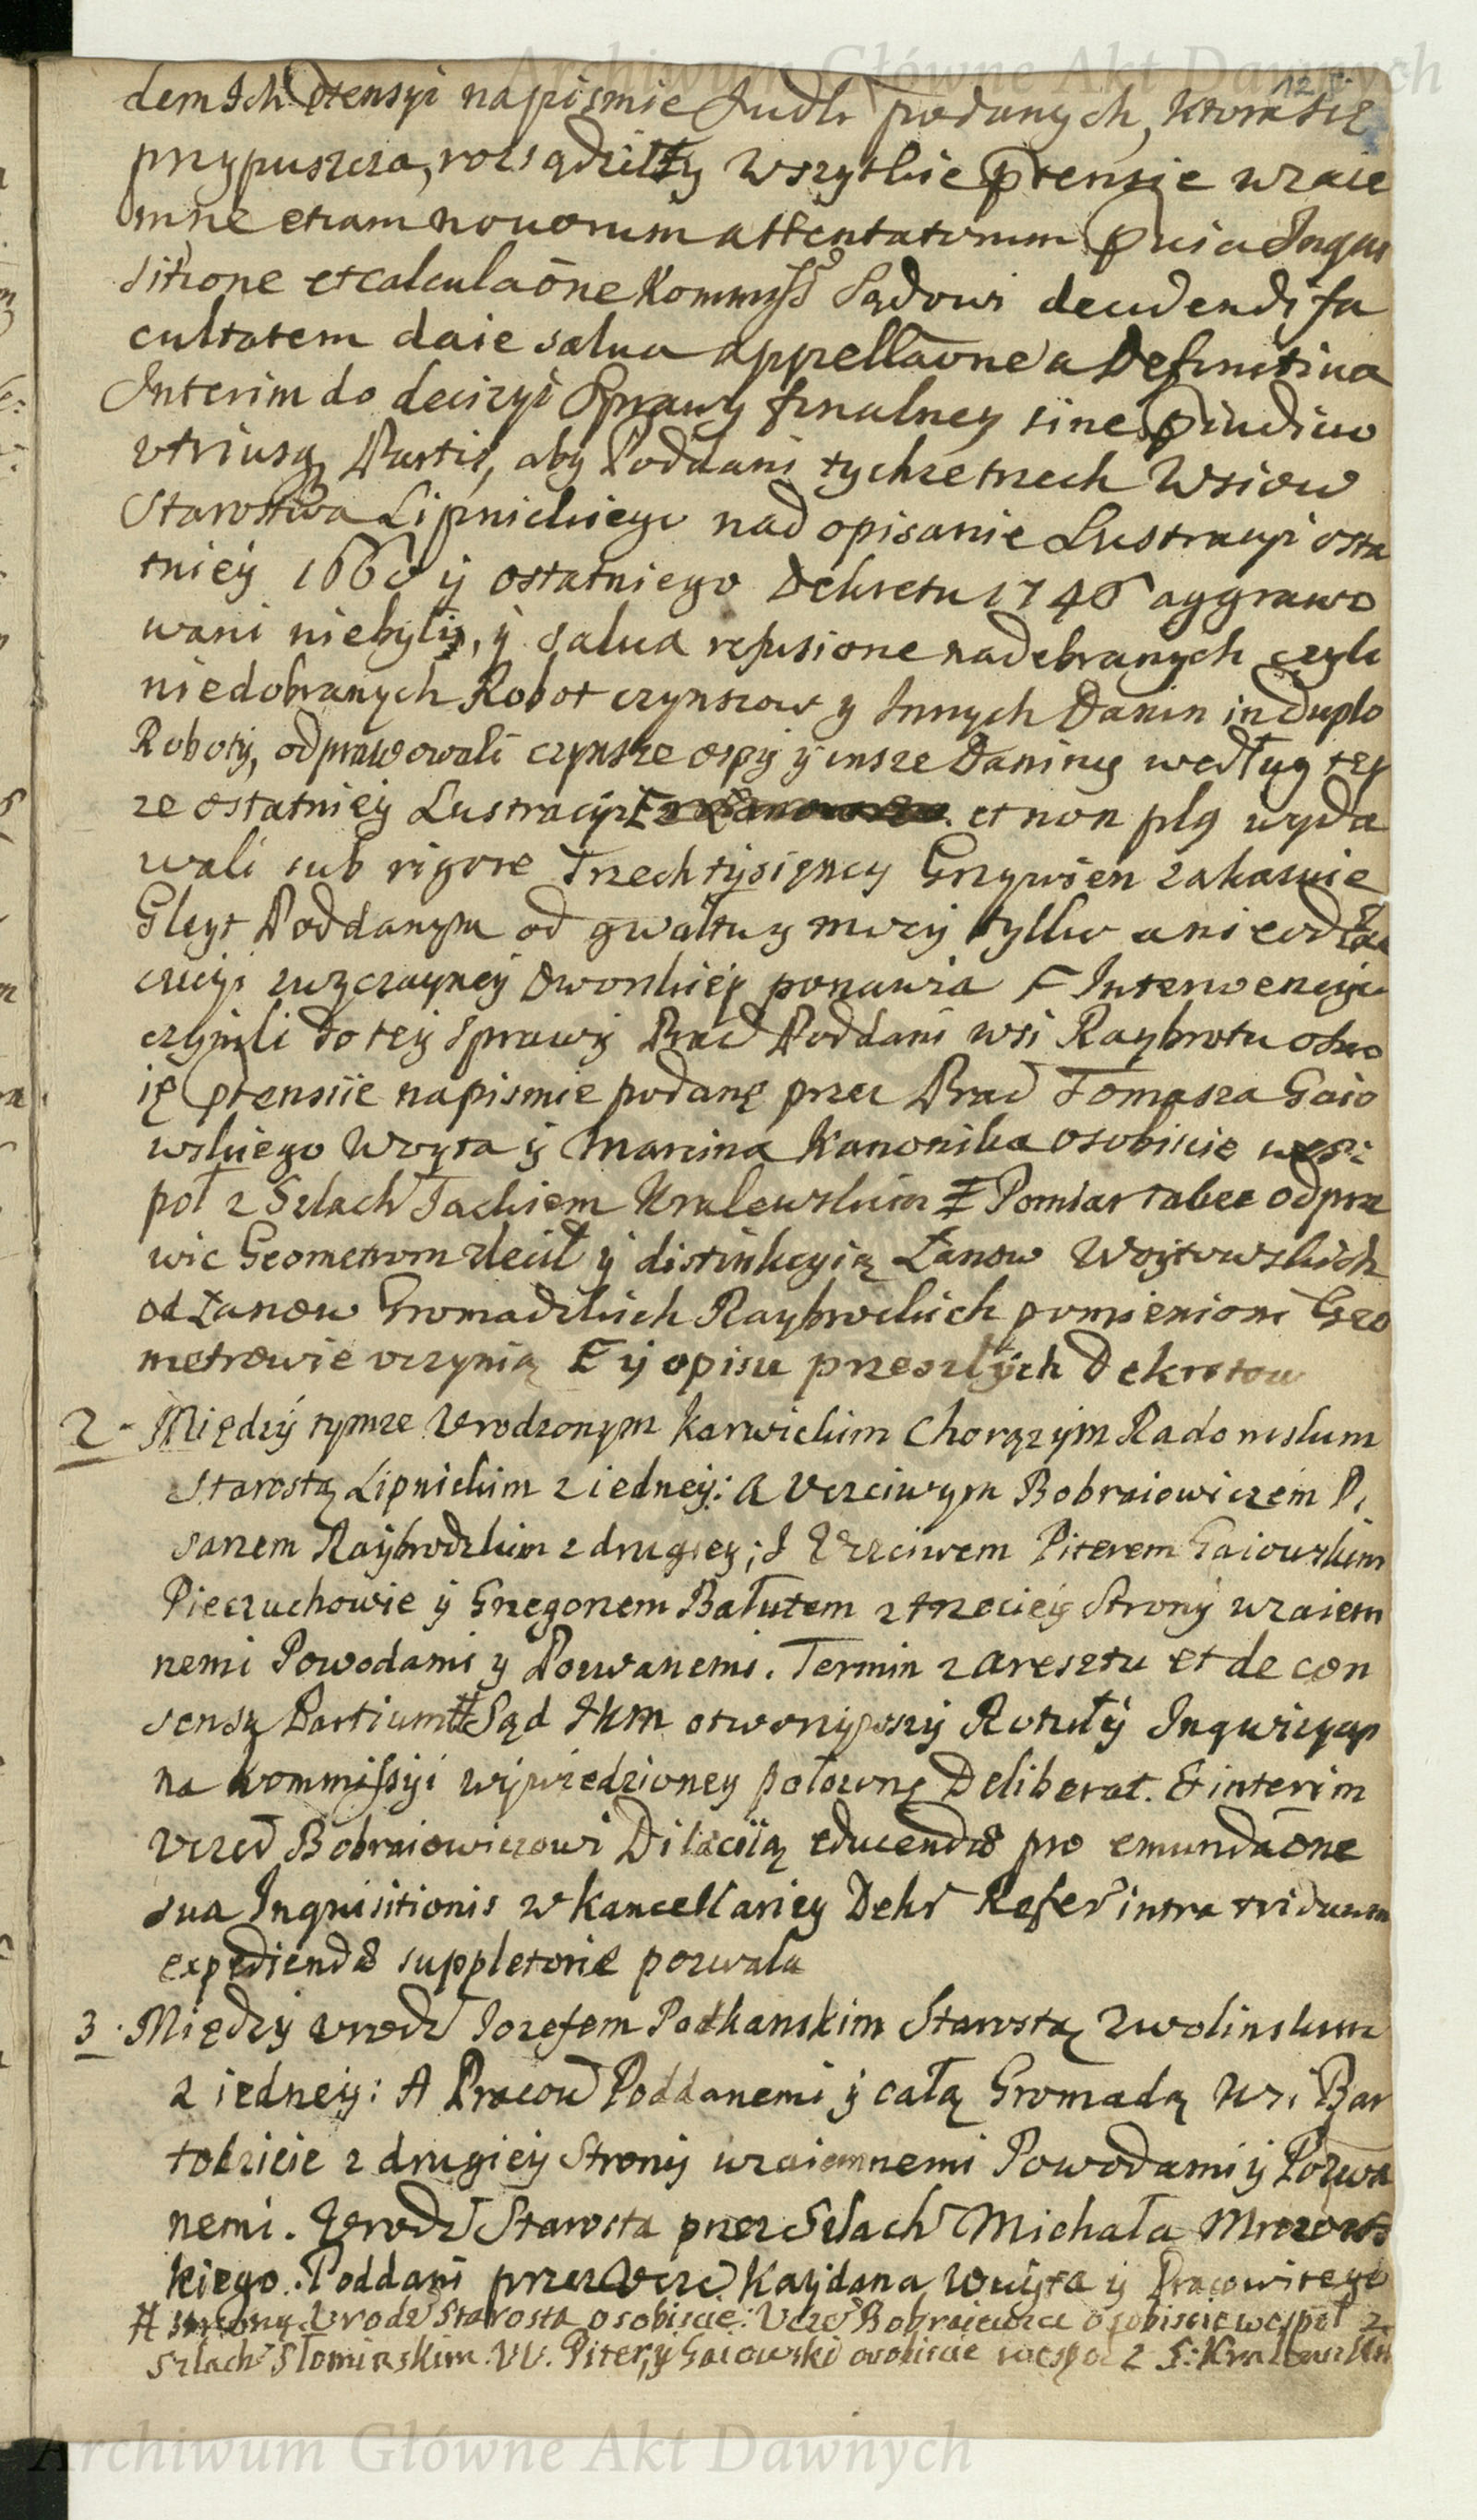 Archiwum Główne Akt Dawnych
12
dem Ich Ptensyi na pismie podanych, ktora się
przypuszcza, rozsądziłby wszytkie Ptensie wzaie
mne etiam novorum attentatorum Pvia Inqui
sitione et calculaōne Kommyss Sądowi decidendi fa
cultatem daie salva appellaōne a Definitiva
Interim do decizyi Sprawy finalney sine Piudicio
vtriusq Partis, aby Poddani tychze trzech Wsiow
Starostwa Lipnickiego nad opisanie Lustracyi osta
tniey 1660 y ostatniego Dekretu 1746 aggrawo
wani niebyli, y salva refusione nadebranych czyli
niedobranych Robot czynszow y Innych Danin in duplo
Roboty, odprawowali czynsze ospy y insze Daniny według tey
ze ostatniey Lustracyi et non pls wyda
wali sub rigore Trzech tysięncy Grzywien zakazuie
Gleyt Poddanym od gwałtu y mocy tylko a nie od Ża
czyi zwyczayney Dworskiey ponawia F Interwencyi
czynili do tey Sprawy Prac Poddani wsi Raybrotu
ię Ptensiie na pismie podanę przez Prac Tomasza Gaio
wskiego Woyta y Marcina Kanonika osobiscie wesz
poł z Szlach Jackiem Kralewskim Ŧ Pomiar tabee odpra
wic Geometrom zlecił y distinkcyią Łanow Woytowskich
od Łanow Gromadzkich Raybrockich pomienioni Geo
metrowie vczynią E y opisu przeszłych Dekretow
2 - Między tymze Vrodzonym Karwickim Chorązym Radomskim
Starostą Lipnickim z iedney: a Vczciwym Bobraiowiczem Pi
sarzem Raybrodzkim z drugiey; I Vczciwem Piterem Gaiowskim
Pieczuchowie y Grzegorzem Bałutem z trzeciey Strony wzaiem
nemi Powodami y Pozwanemi. Termin z aresztu et de con
sensu Partium # Sąd IKM otworzywszy Rotuły Inqwizycyi
na Kommissyi wywiedzioney połownę Deliberat. Et interim
Vczc Bobraiowiczowi Dilacyią educendo pro emundaōne
sua Inquisitionis w Kancellariey Dekr Refer intra triduum
expediendo suppletorie pozwala
3. Między vrodz Jozefem Podkanskim Starostą Zwolinskim
z iedney: A Pracow Poddanemi y całą Gromadą Wsi Bar
todzieie z drugiey Strony wzaiemnemi Powodami y Pozwa
nemi. Vrodz Starosta przez Szlach Michała
kiego. Poddani przez Vczc Kaydana Woyta y Pracowitego
# strony Vrodz Starosta osobiscie: Vczc Bobraiewicz osobiscie wespoł z
Szlach Słominskim. VV. Piter, y Gaiowski osobiscie wespoł z S: Kralewskim
Archiwum Główne Akt Dawnych